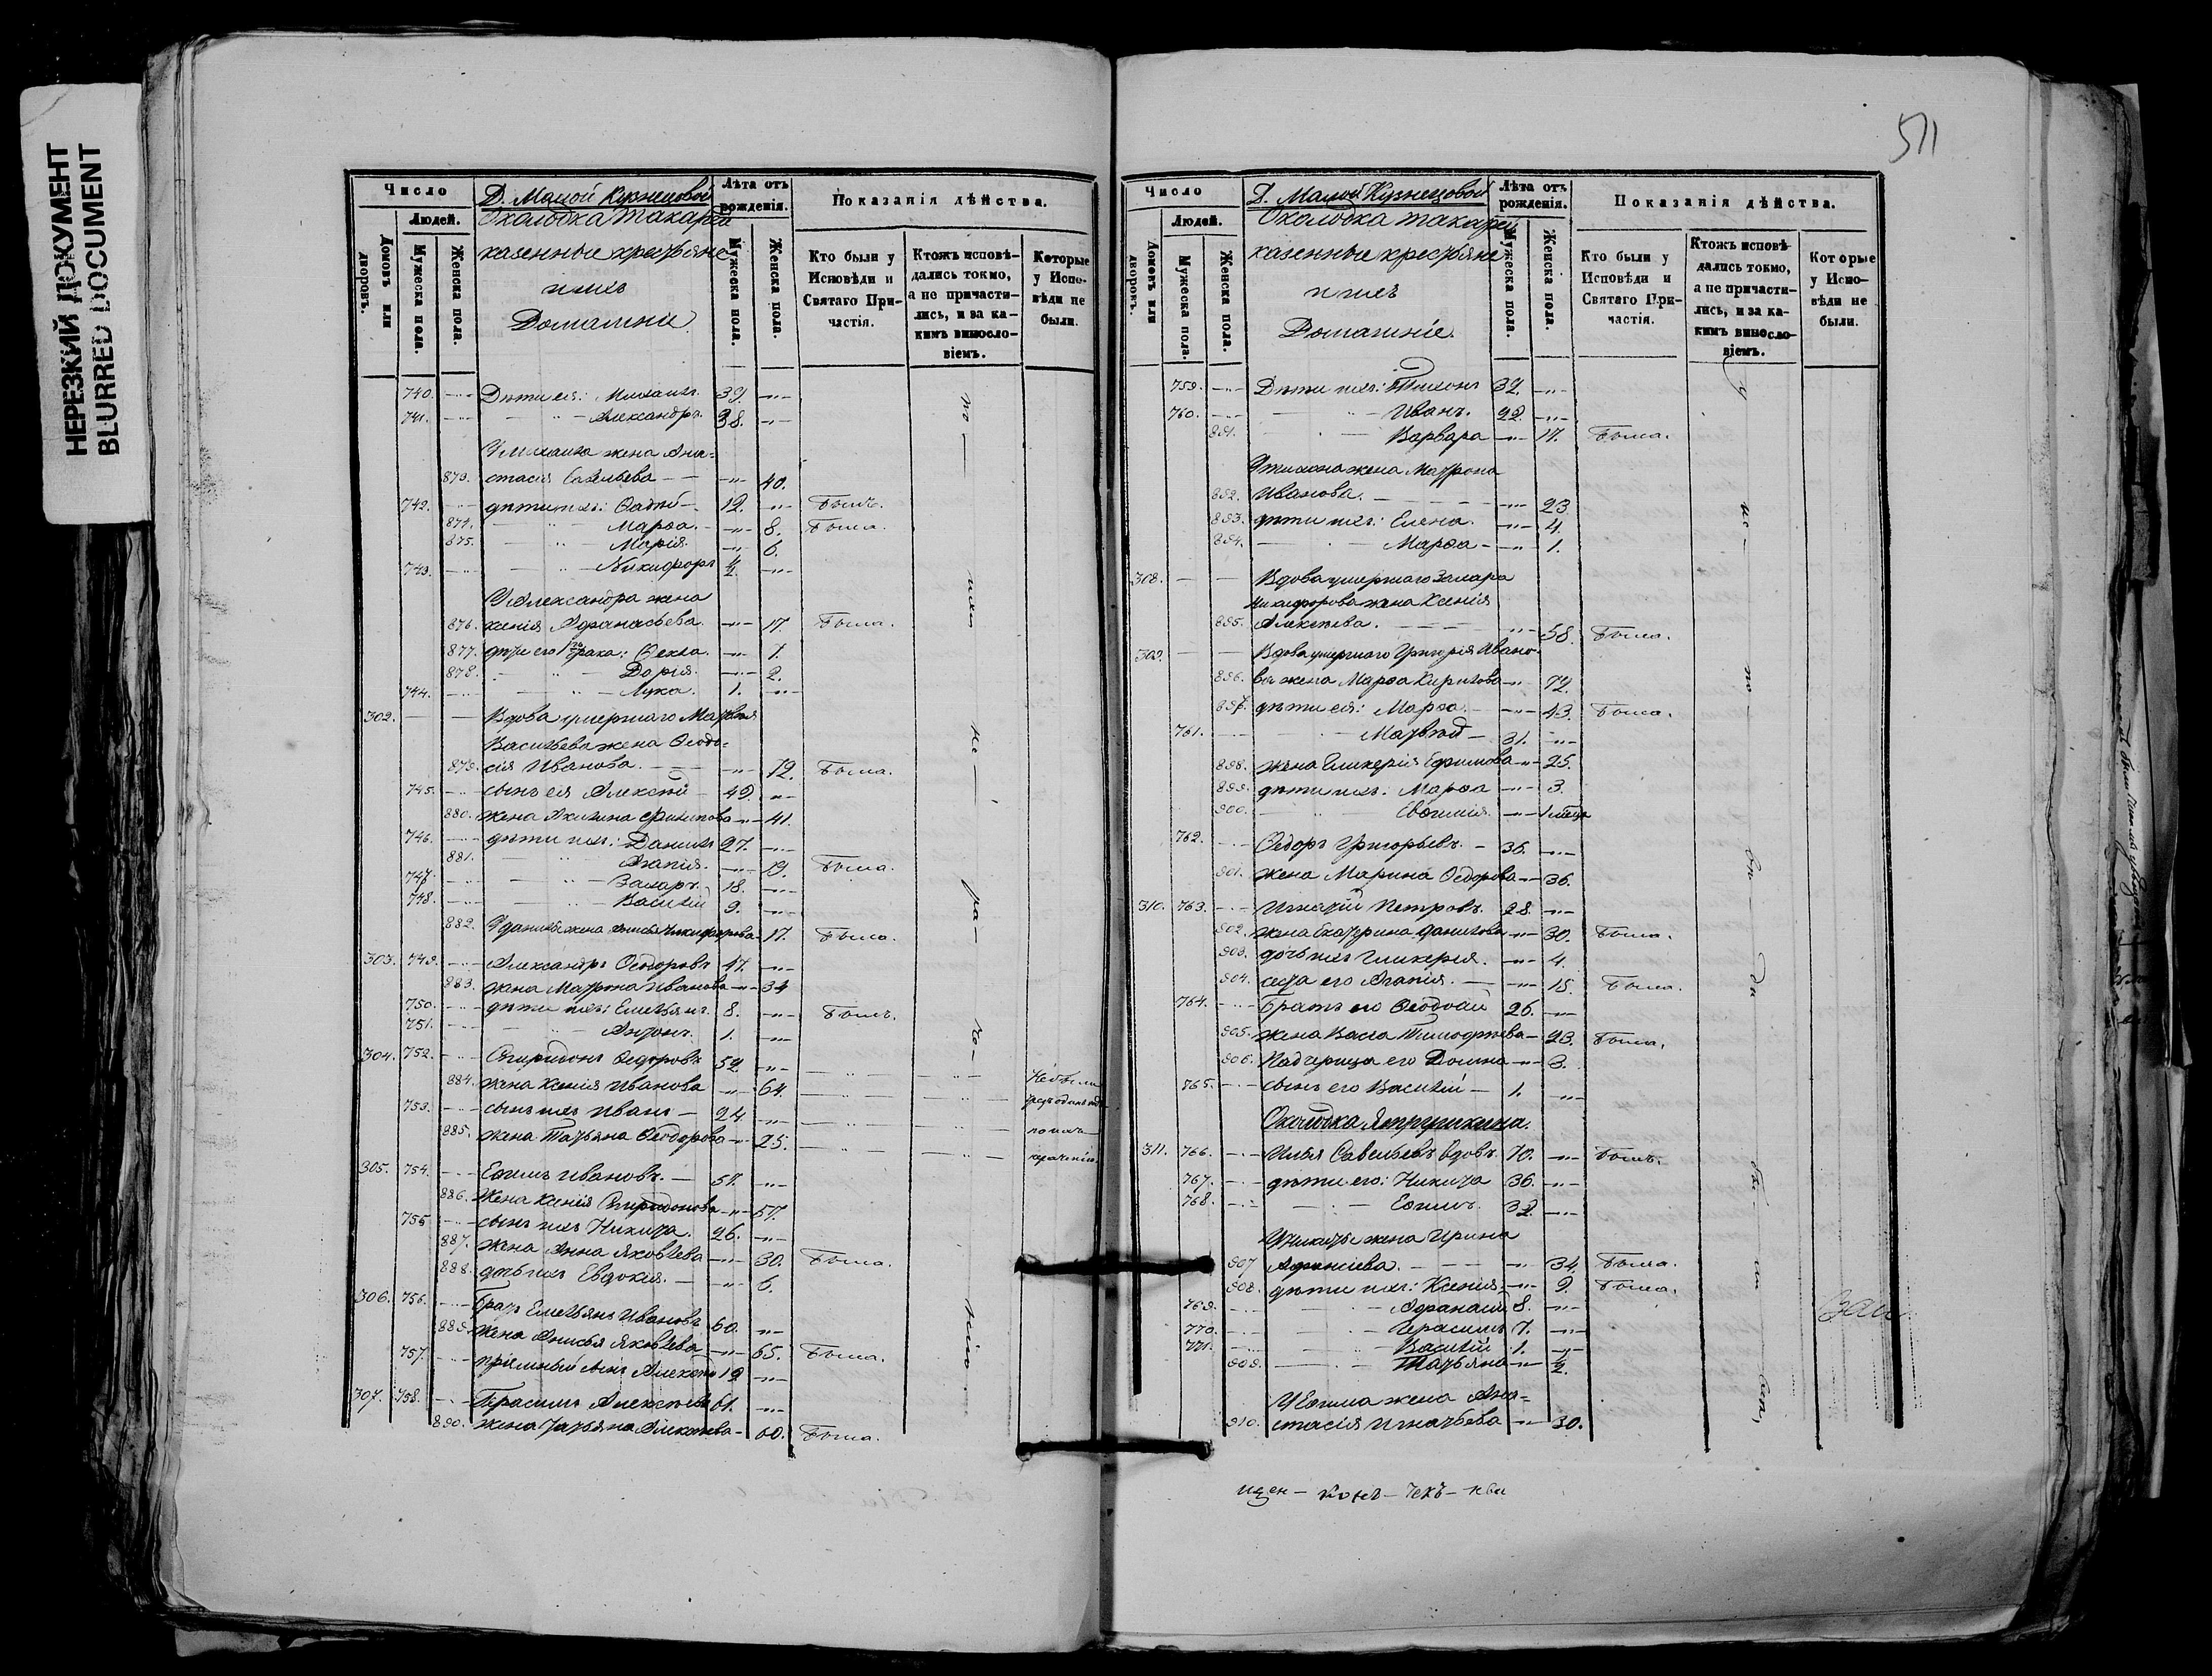 НЕРЕЗКИЙ ДОКУМЕНТ
BLURRED DOCUMENT
Число
Людей.
Домовъ или дворовъ.
Мужеска пола.
Женска пола.
Д. Малой Кузнецовой
Околодка Такарей
казенные крестьяне
и ихъ
Домашніе
Лѣта отъ рожденія.
Мужеска пола.
Женска пола.
Показанія дѣйства.
Кто были у Исповѣди и Святаго Причастія.
Ктожъ исповѣдались токмо, а не причастились, и за какимъ винословіемъ.
Которые у Исповѣди не были.
740. Дѣти ея: Михаилъ 39.
741. Александръ. 38.
У Михаила жена Ана-
873. стасія Савельева 40.
742. дѣти ихъ: Фадѣй 12. Былъ.
874. Марѳа. 8. Была.
875. Марія. 6.
743. Никифоръ
У Александра жена
876. ксенія Афанасьева. 17. Была.
877. дѣти его 1го брака: Ѳекла. 1.
878. Дарія. 2.
744. Лука. 1.
302. Вдова умершаго Матвѣя
Васильева жена Ѳеодо-
879. сія Иванова. 72. Была.
745. сынъ ея Алексѣй 49.
880. жена Акилина Филипова 41.
746. дѣти ихъ: Данилъ 27.
881. Агапія. 19. Была.
747. Захаръ. 18.
748. Василій 9.
882. У Данилы жена Анисья Никифорова 17. Была.
303. 749. Александръ Ѳеодоровъ 47.
883. жена Марѳа Иванова 34
750. дѣти ихъ: Емельянъ. 8. Былъ.
751. Антонъ. 1.
304. 752. Спиридонъ Ѳедоровъ 52.
884. жена Ксенія Иванова 64. Не были
753. сынъ ихъ Иванъ 24.
885. жена Татьяна Ѳеодорова 25.
305. 754. Ефимъ Ивановъ. 57.
886. Жена Ксенія Спиридонова 57.
755 сынъ ихъ Никита. 26.
887. жена Анна Яковлева 30. Была.
888. дочь ихъ Евдокія. 6.
306. 756. Братъ Емельянъ Ивановъ 60.
889. жена Анисья Яковлева 65. Была.
757. пріемный сынъ Алексѣй 19
307. 758. Герасимъ Алексѣевъ 61.
890. жена Татьяна Алексѣева 60. Была.
511
Число
Людей.
Домовъ или дворовъ.
Мужеска пола.
Женска пола.
Д. Малой Кузнецовой
Околодка Такарей
казенные крестьяне
и ихъ
Домашніе.
Лѣта отъ рожденія.
Мужеска пола.
Женска пола.
Показанія дѣйства.
Кто были у Исповѣди и Святаго Причастія.
Ктожъ исповѣдались токмо, а не причастились, и за какимъ винословіемъ.
Которые у Исповѣди не были.
759. Дѣти ихъ: Тихонъ 32.
760. Иванъ. 22.
891. Варвара 17. Была.
У Тихона жена Матрона
892. Иванова. 23
893. дѣти ихъ: Елена. 4.
894. Марѳа 1.
308. Вдова умершаго Захара
Никифорова жена Ксенія
895. Алексѣева. 58. Была.
309. Вдова умершаго Григорія Ивано-
896. ва жена Марѳа Кирилова 72.
897. дѣти ея: Марѳа. 43. Была.
761. Матвѣй 31.
898. жена Гликерія Ефимова 25.
899. дѣти ихъ: Марѳа 3.
900. Евфимія.
762. Ѳедоръ Григорьевъ. 36.
901. жена Марина Ѳедорова 36.
310. 763. Игнатій Петровъ. 28.
902. жена Екатерина Данилова 30. Была.
903. дочь ихъ Гликерія. 4.
904. сестра его Агапія. 15. Была.
764. Братъ его Ѳеодосій 26.
905. жена Васса Тимофѣева 23. Была.
906. Падчерица его Домна 3.
765. сынъ его Василій 1.
Околодка Япрушкина.
311. 766. Илья Савельевъ вдовъ. 70. Былъ.
767. дѣти его: Никита 36.
768. Ефимъ. 32.
У Никиты жена Ирина
907 Афонсіева. 34. Была.
908. дѣти ихъ: Ксенія. 9. Была.
769. Афанасій 8.
770. Герасимъ 7.
771. Василій 1.
909. Татьяна
У Ефима жена Ана-
910. стасія Игнатьева 30.